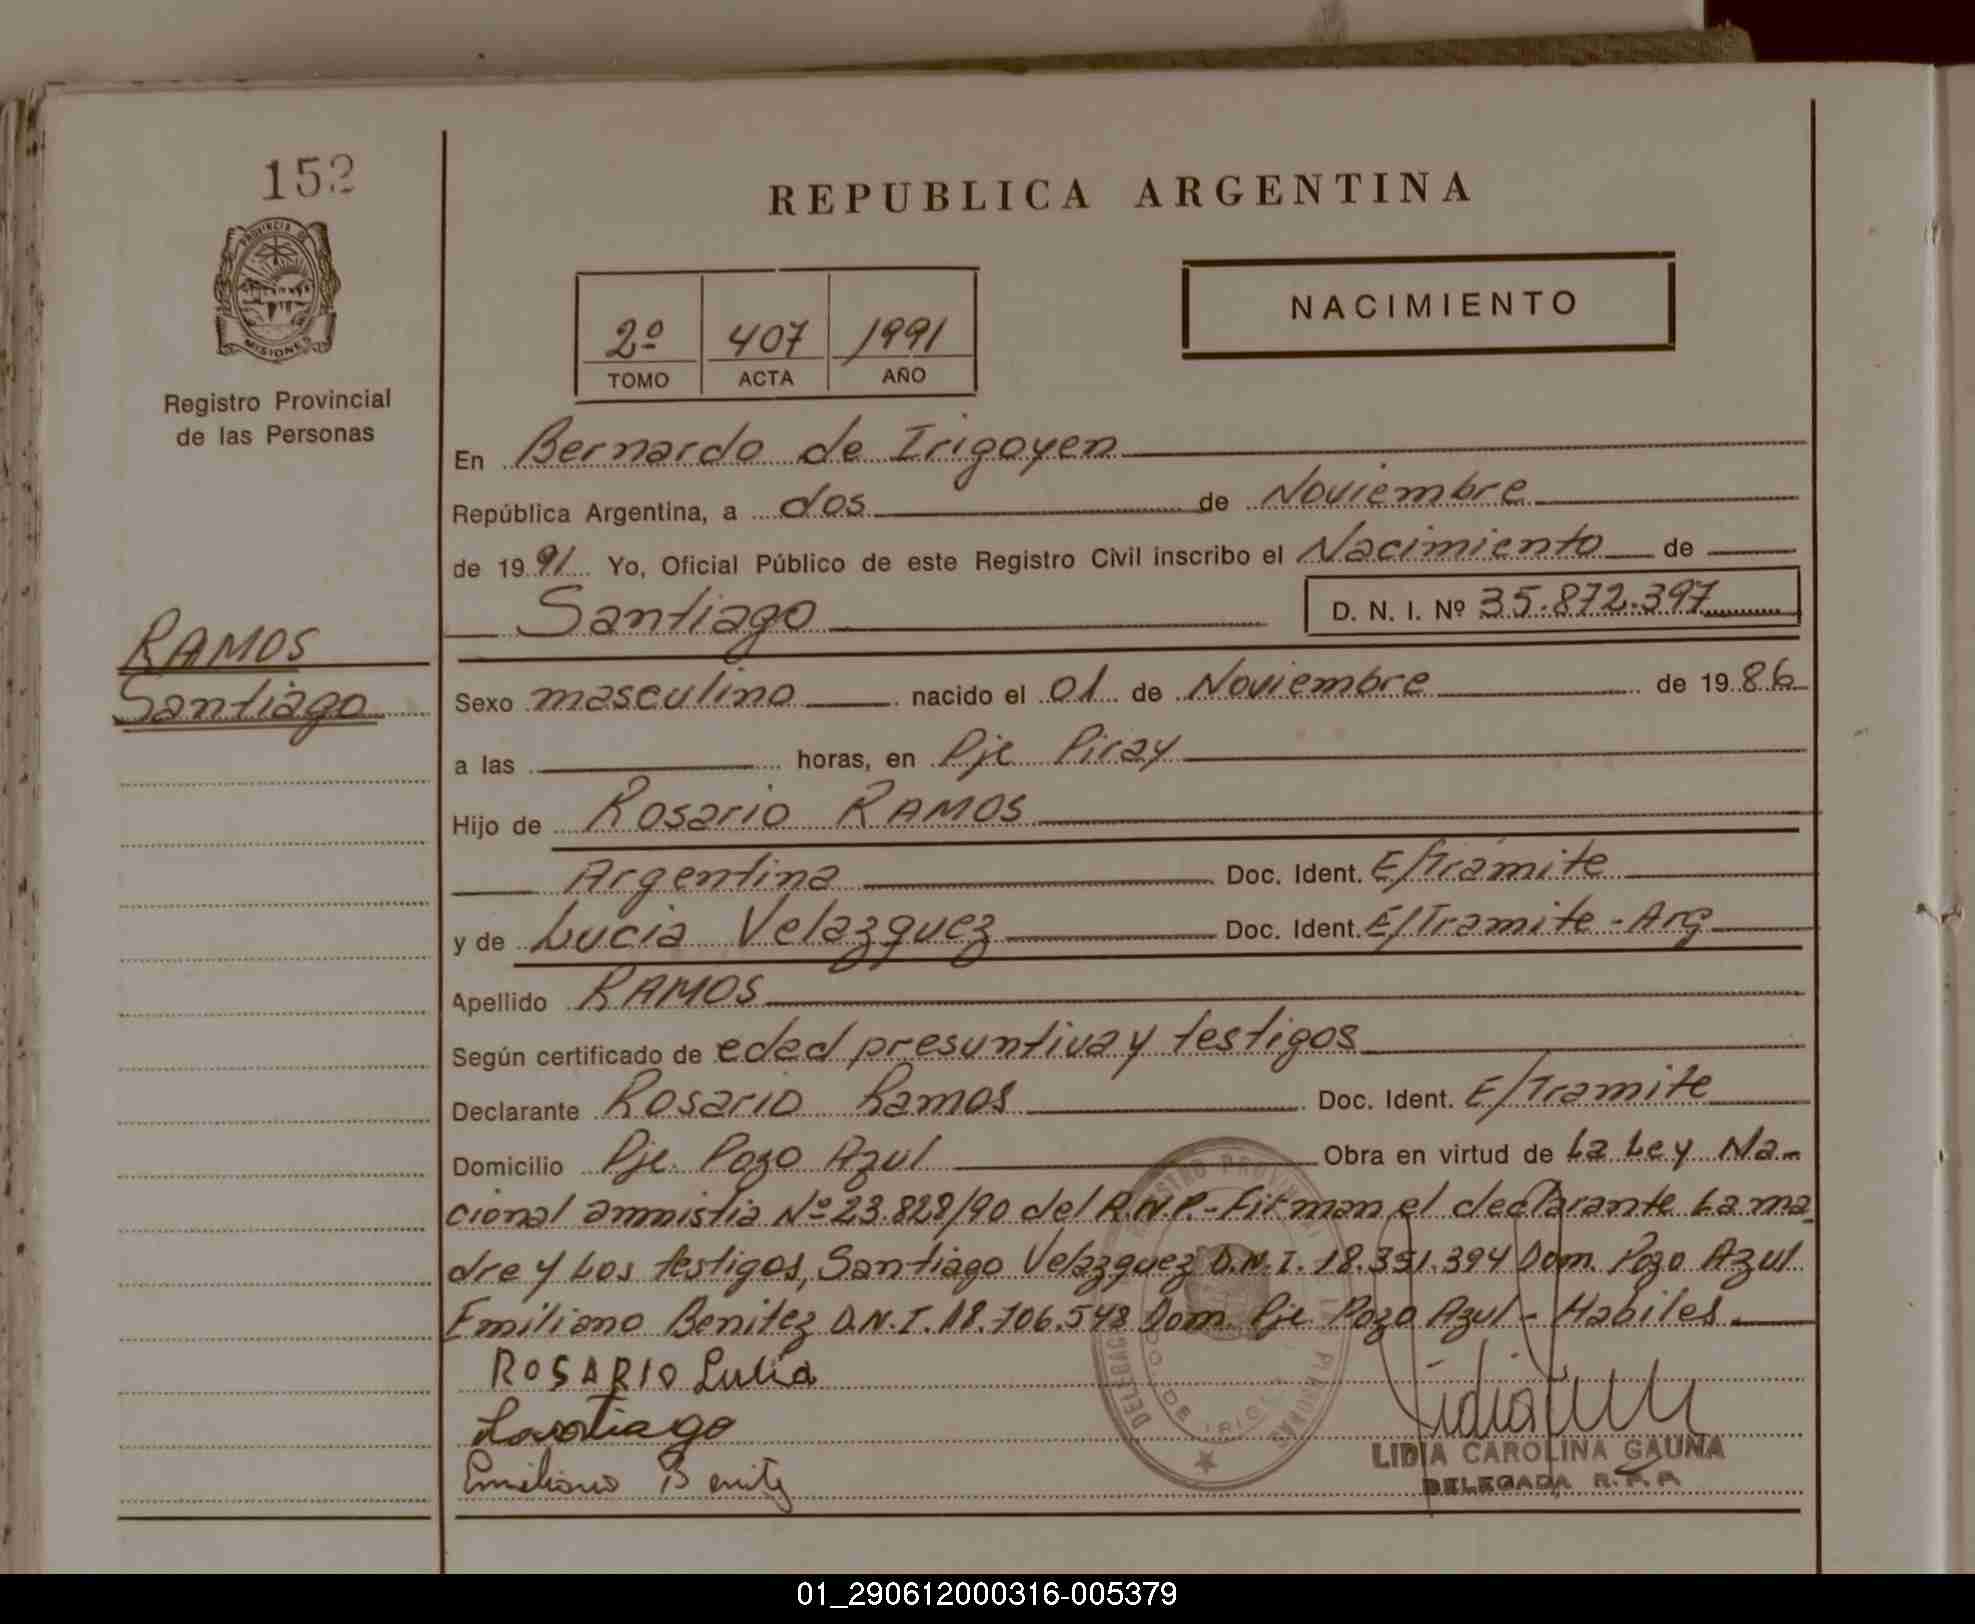 152
REPUBLICA ARGENTINA
PROVINCIA DE
MISIONES
Registro Provincial
de las Personas
NACIMIENTO
2º 407 1991
TOMO ACTA AÑO
En Bernardo de Irigoyen
República Argentina, a dos de Noviembre
de 1991 Yo, Oficial Público de este Registro Civil inscribo el Nacimiento de
Santiago D. N. I. Nº 35.872.397
RAMOS
Santiago
Sexo masculino nacido el 01 de Noviembre de 1986
a las horas, en Pje Piray
Hijo de Rosario RAMOS
Argentina Doc. Ident. E/Trámite
y de Lucia Velazquez Doc. Ident. E/Tramite - Arg
Apellido RAMOS
Según certificado de edad presuntiva y testigos
Declarante Rosario Ramos Doc. Ident. E/Tramite
Domicilio Pje. Pozo Azul Obra en virtud de La Ley Na-
cional amnistia Nº 23.828/90 del R.N.P.- Firman el declarante La ma-
dre y Los testigos, Santiago Velazquez D.N.I. 18.351.394 Dom. Pozo Azul
Emiliano Benitez D.N.I. 18.706.548 Dom. Pje Pozo Azul - Habiles
ROSARIO
Santiago
Emiliano Benitz
LIDIA CAROLINA GAUNA
DELEGADA R. P. P.
01_290612000316-005379